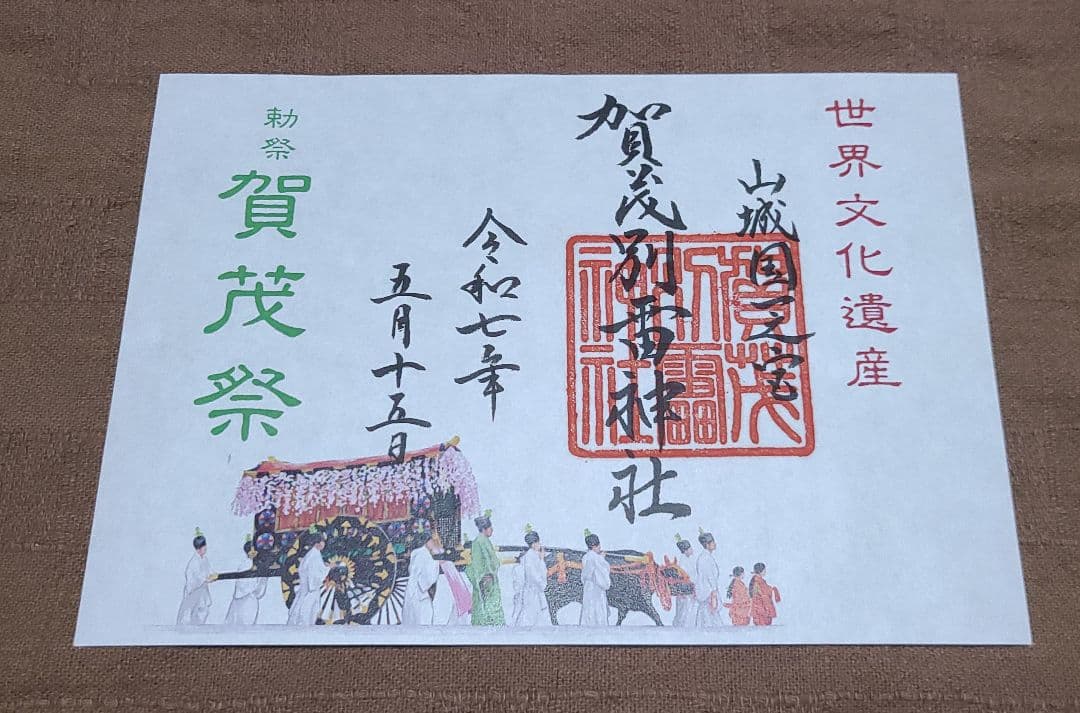 世界文化遺産
山城国一之宮
賀茂別雷神社
賀茂別雷神社
令和七年
五月十五日
勅祭
賀茂祭